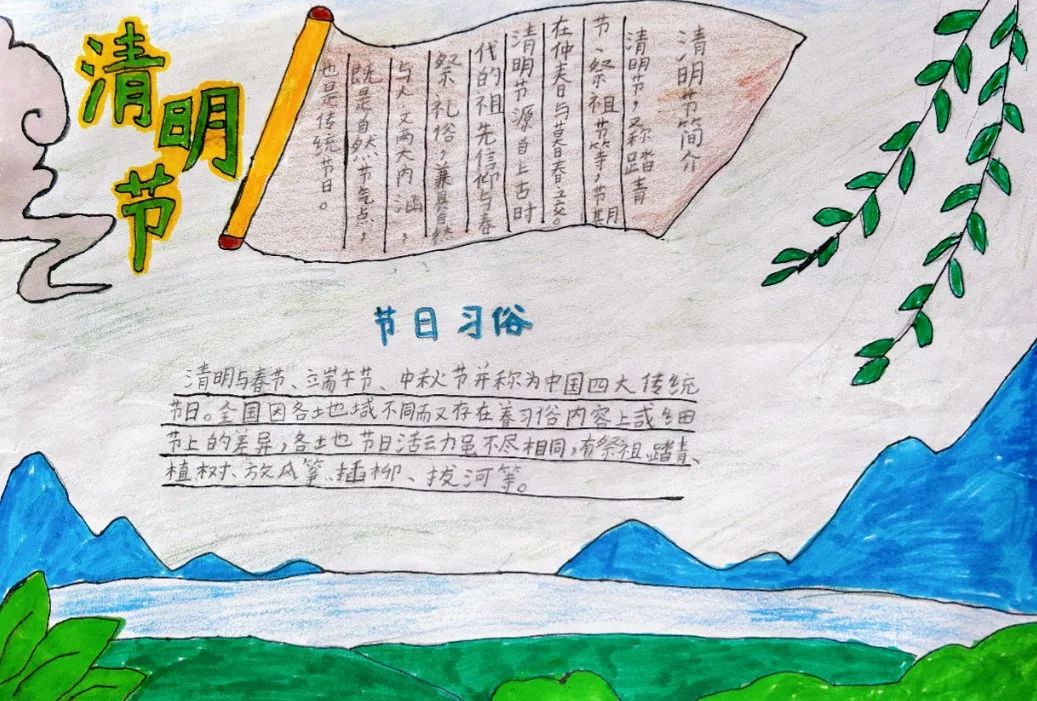 清明节
清明节简介
清明节，又称踏青
节、祭祖节等，节期
在仲春与暮春之交。
清明节源自上古时
代的祖先信仰与春
祭礼俗，兼具自然
与人文两大内涵，
既是自然节气点，
也是传统节日。
节日习俗
清明与春节、端午节、中秋节并称为中国四大传统
节日。全国因各地域不同而又存在着习俗内容上或细
节上的差异，各地节日活动虽不尽相同，有祭祖、踏青、
植树、放风筝、插柳、拔河等。